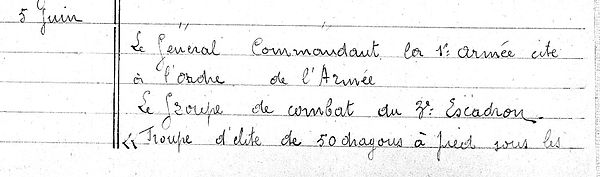 5 Juin
Le Général Commandant la 1e armée cite
à l'ordre de l'Armée
Le Groupe de combat du 3e Escadron
« Troupe d'élite de 50 dragons à pied sous les